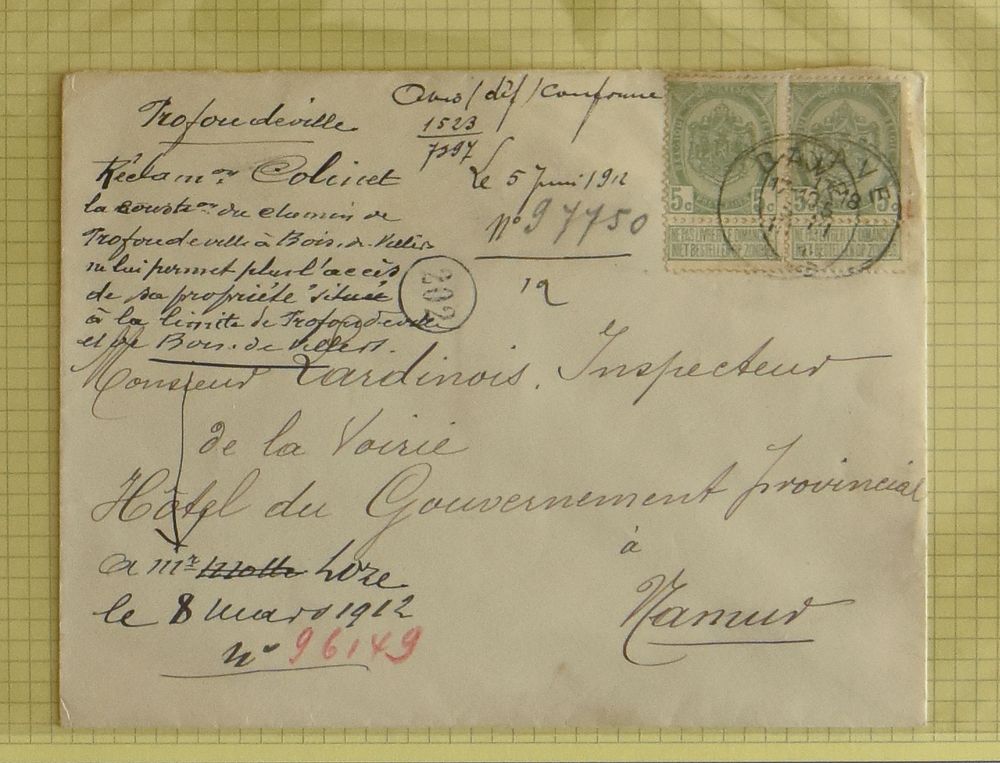 Profondeville
Réclam.on Colinet
la constr.on du chemin de
Profondeville à Bois-de-Villers
ne lui permet plus l'accès
de sa propriété située
à la limite de Profondeville
et de Bois-de-Villers.
Avis (déf) conforme
1523
7397
Le 5 Juin 1912
N° 97750
19
202
5c 5c
NE PAS LIVRER LE DIMANCHE NE PAS LIVRER LE DIMANCHE
NIET BESTELLEN OP ZONDAG NIET BESTELLEN OP ZONDAG
Monsieur Lardinois, Inspecteur
de la Voirie
Hôtel du Gouvernement Provincial
à
Namur
a Mr Motte Loze
le 8 Mars 1912
N° 96149